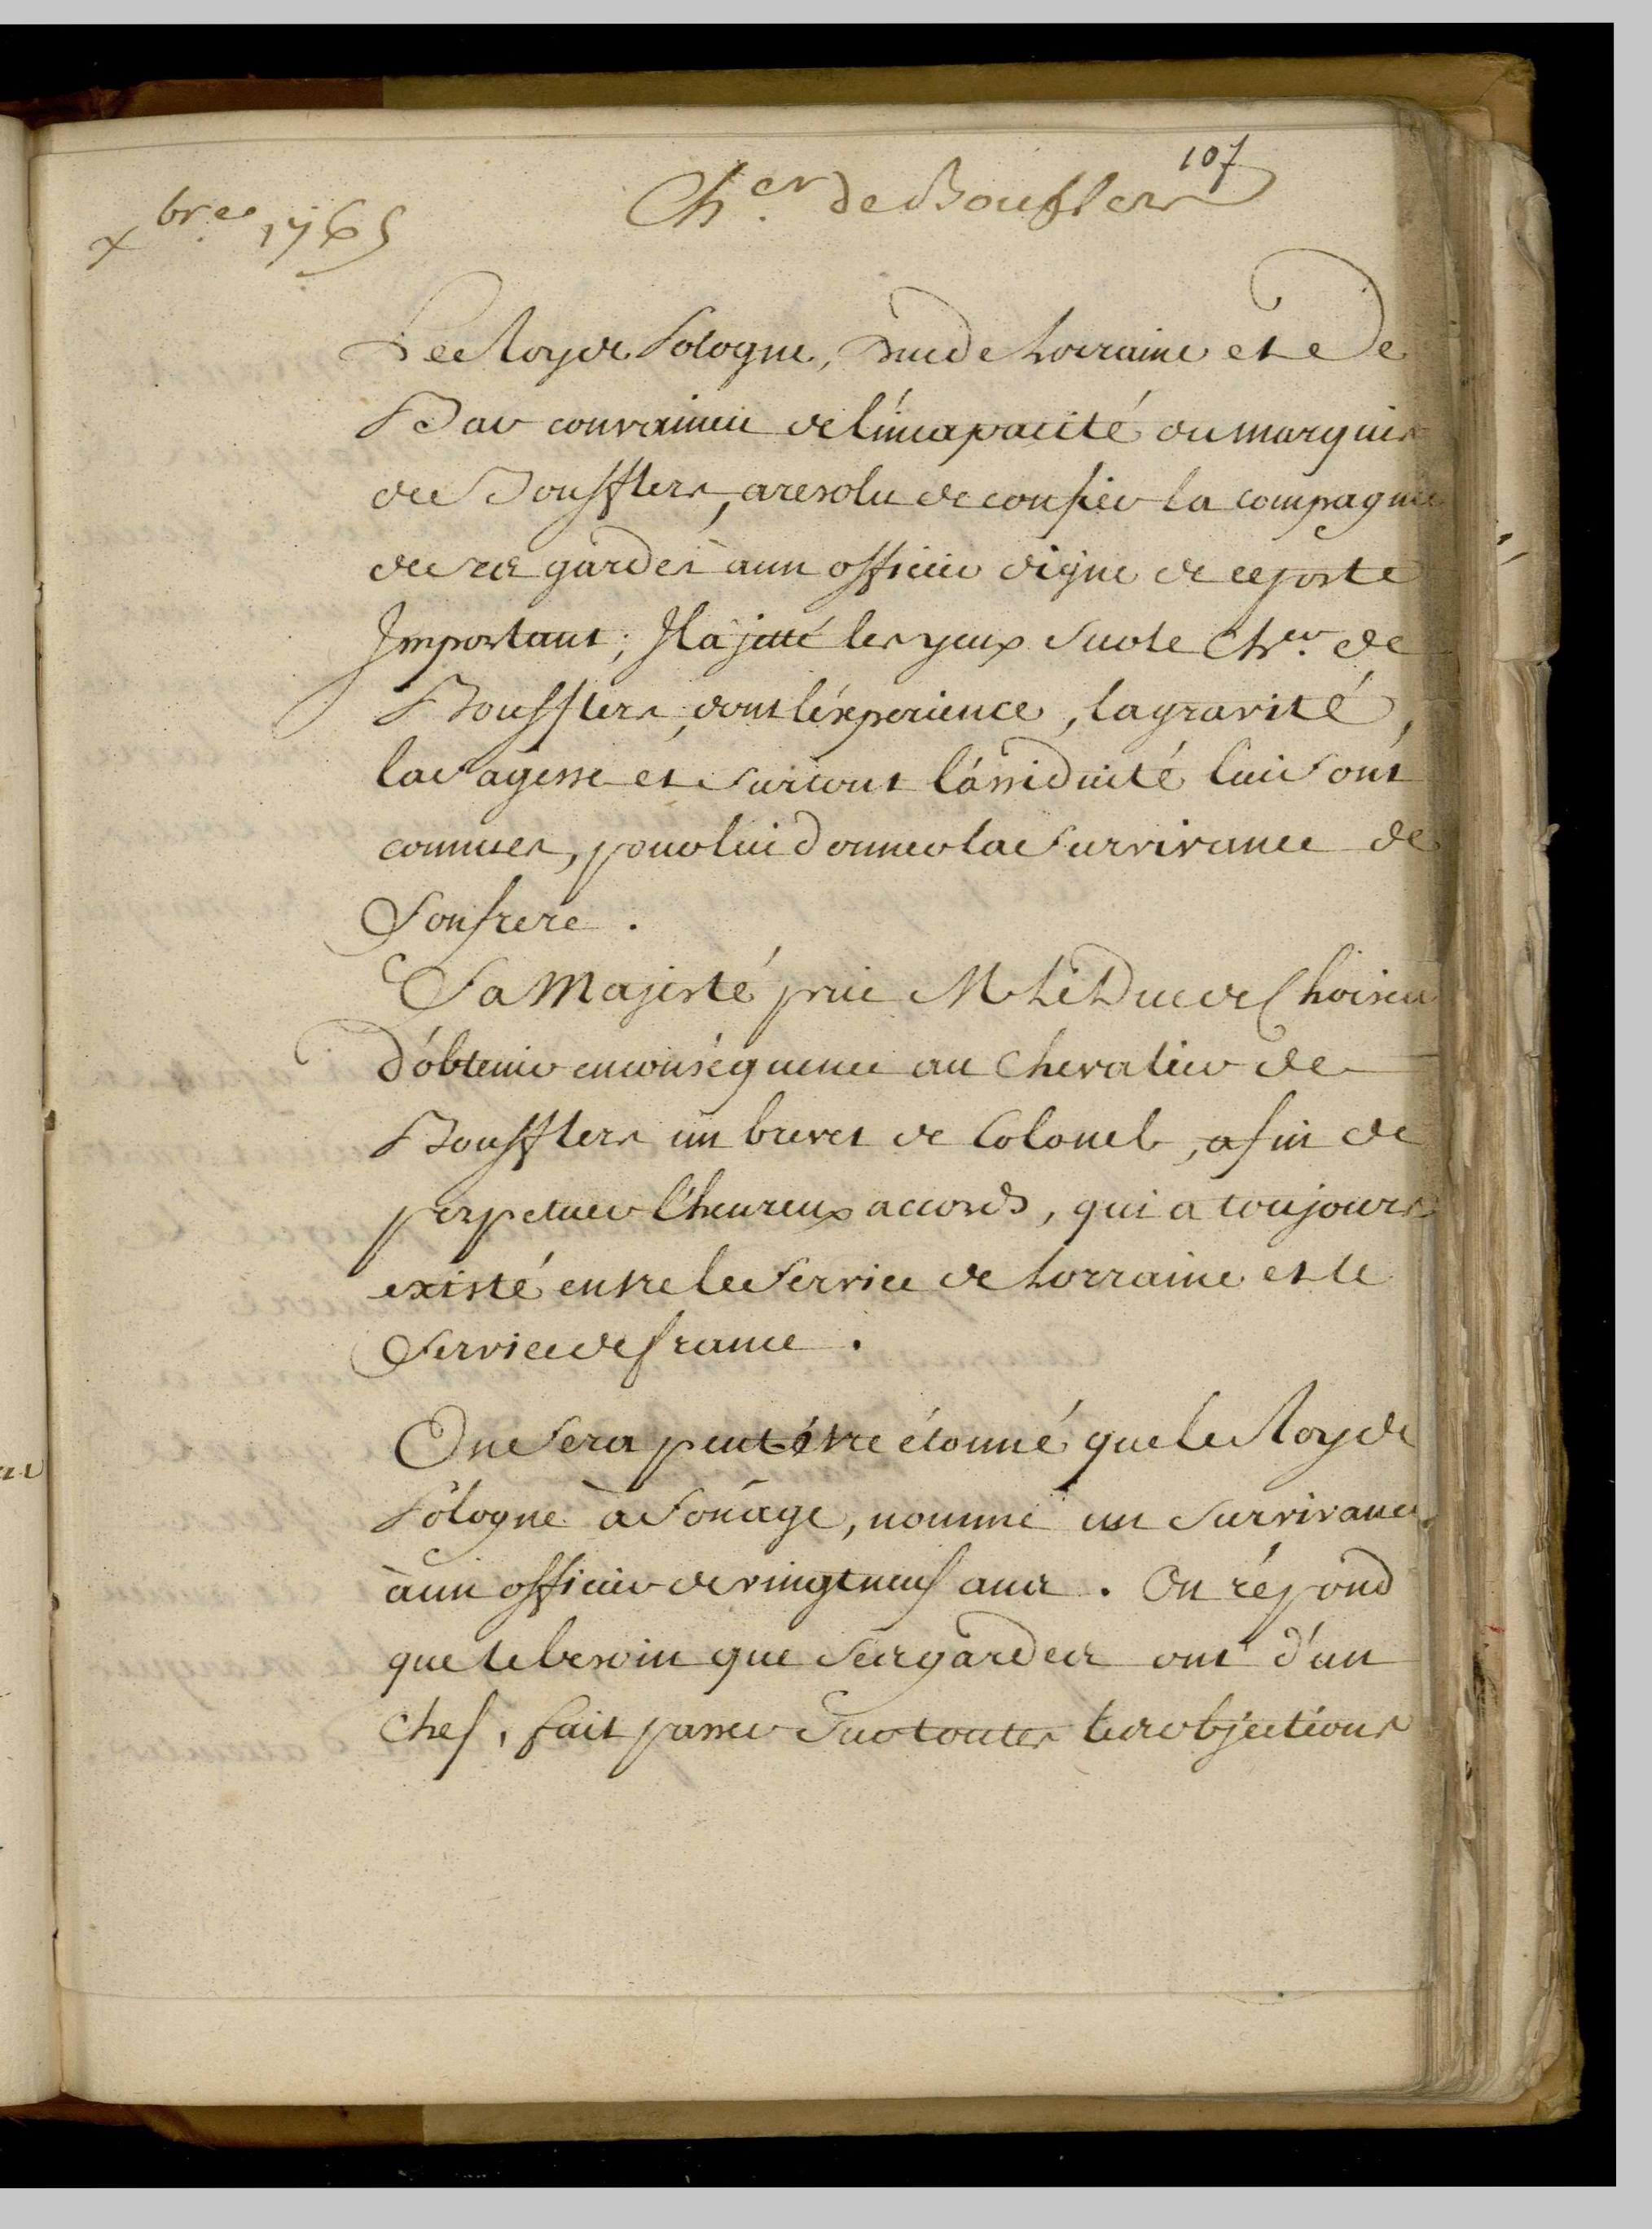 107
Ch.er de Bouflers
xbre. 1765
Le Roy de Pologne, Duc de Lorraine et De
Bar convaincu de l'incapacité du marquis
de Boufflers, a resolu de confier la compagnie
de ses gardes à un officier digne de ce poste
Important; Il a jetté les yeux sur le Ch.er de
Boufflers, dont l'éxperience, la gravité,
la Sagesse et Surtout l'assiduité lui Sont
connues, pour lui donner la Survivance de
Son frere.
Sa Majesté prie M Le Duc de Choiseu
d'obtenir en conséquence au Chevalier de
Boufflers un brevet de Colonel, afin de
perpetuer l'heureux accord, qui a toujours
existé entre le Service de Lorraine et le
Service de france.
On Sera peut être étonné que le Roy de
Pologne à Son âge, nomme un Survivancier
à un officier de vingt neuf ans. On répond
que le besoin que Ses gardes ont d'un
Chef, fait passer Sur toutes les objections